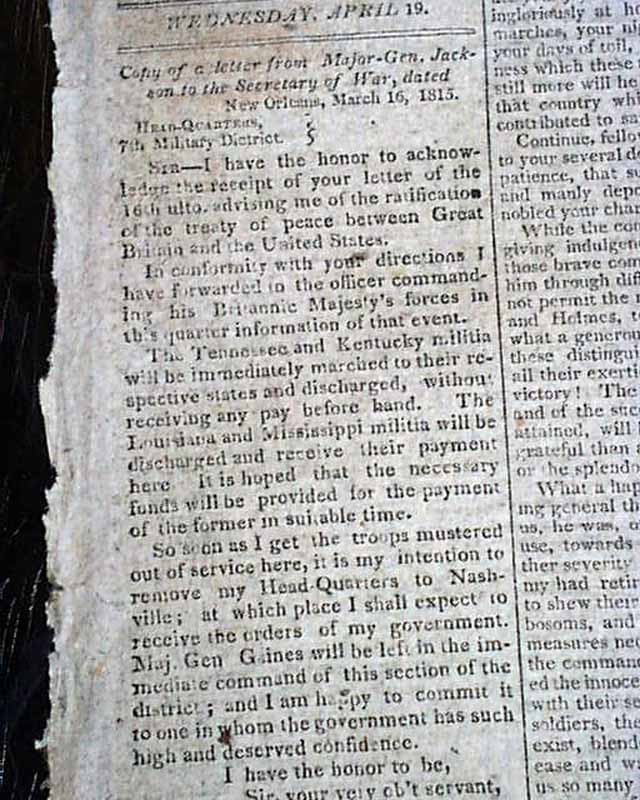 WEDNESDAY, APRIL 19.
Copy of a letter from Major-Gen. Jack-
son to the Secretary of War, dated
New Orleans, March 16, 1815.
HEAD-QUARTERS,
7th Military District.
SIR—I have the honor to acknow-
ledge the receipt of your letter of the
16th ulto. advising me of the ratification
of the treaty of peace between Great
Britain and the United States.
In conformity with your directions I
have forwarded to the officer command-
ing his Britannic Majesty's forces in
this quarter information of that event.
The Tennessee and Kentucky militia
will be immediately marched to their re-
spective states and discharged, without
receiving any pay before hand. The
Louisiana and Mississippi militia will be
discharged and receive their payment
here It is hoped that the necessary
funds will be provided for the payment
of the former in suitable time.
So soon as I get the troops mustered
out of service here, it is my intention to
remove my Head-Quarters to Nash-
ville; at which place I shall expect to
receive the orders of my government.
Maj. Gen Gaines will be left in the im-
mediate command of this section of the
district; and I am happy to commit it
to one in whom the government has such
high and deserved confidence.
I have the honor to be,
Sir, your very ob't servant,
ingloriously at
marches, your
your days of toil,
ness which these
still more will he
that country
contributed to
Continue,
to your several
patience, that
and manly
nobled your
While the
giving
those brave
him through
not permit the
and Holmes,
what a
these
all their
victory! The
and of the
attained, will
grateful than
or the
What a
ing general
us, he was,
use, towards
ther severity
my had
to shew their
bosoms, and
measures
the
ed the
with their
soldiers, the
exist,
ease and
us so many